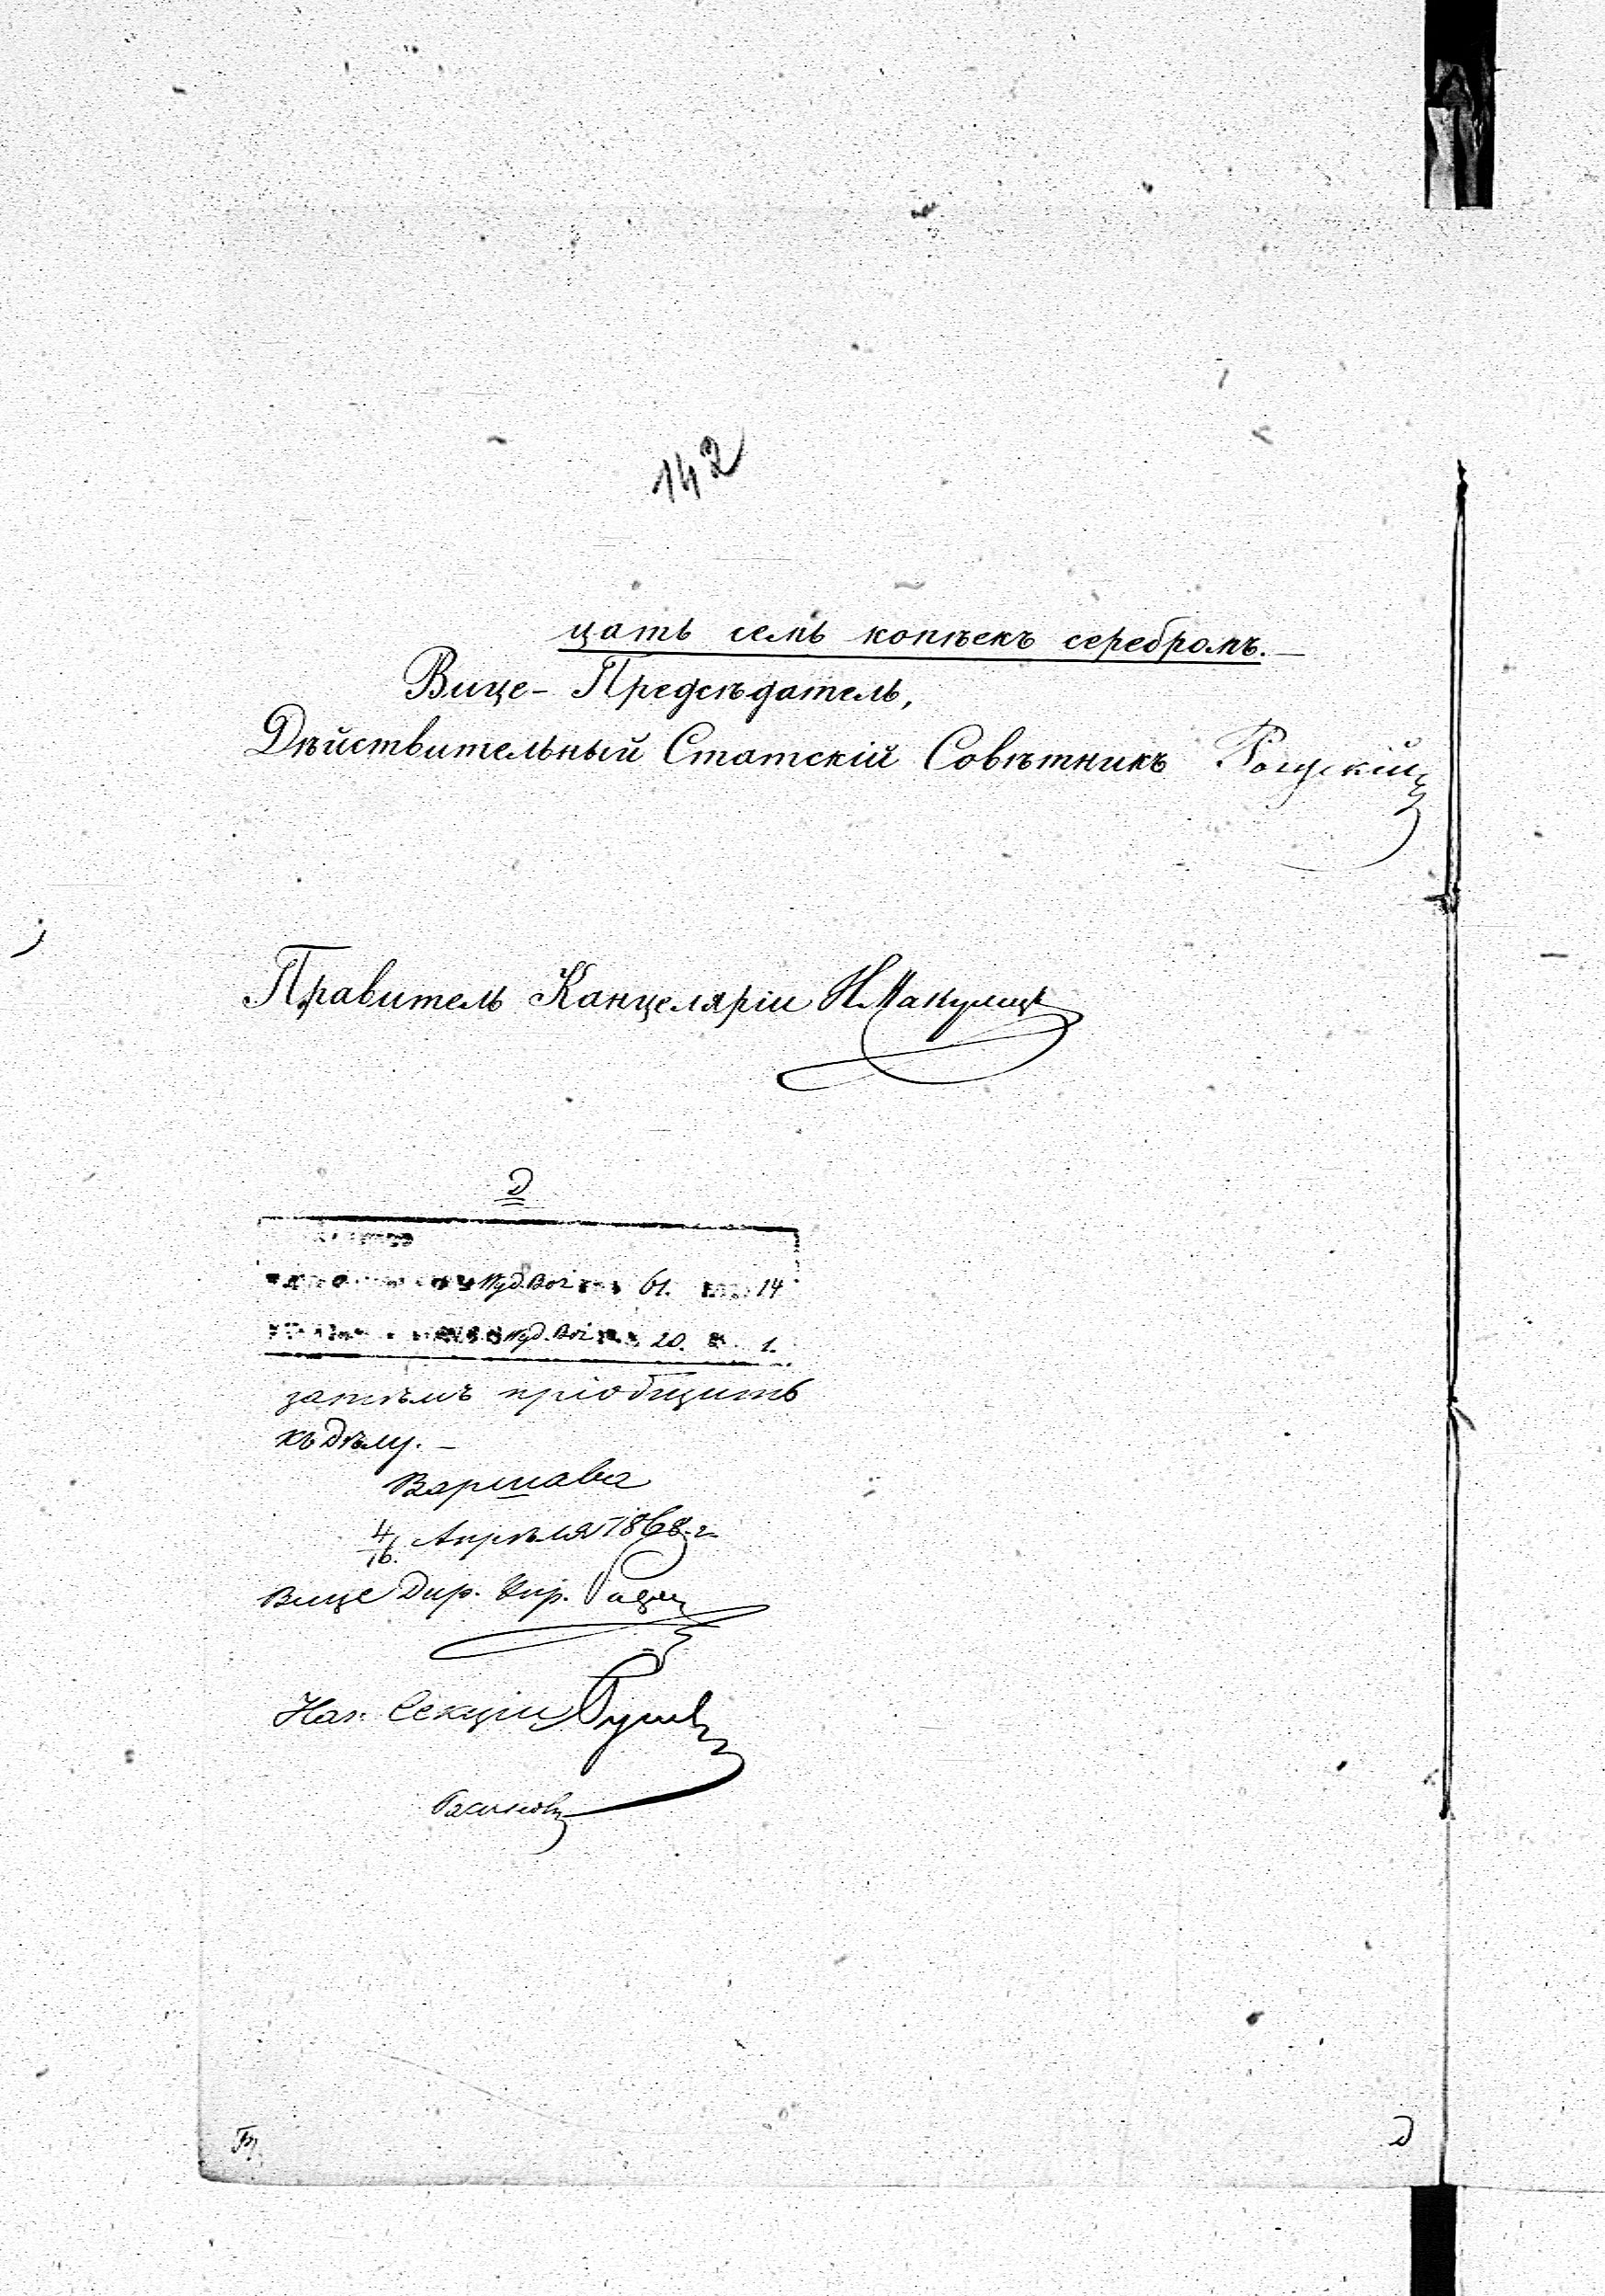 142
цать семь копѣекъ серебромъ.—
Вице-Предсѣдатель,
Дѣйствительный Статскій Совѣтникъ
Правитель Канцеляріи Н.
Д
61. 14
20. 1.
затѣмъ пріобщить
къ Дѣлу. —
Варшава
4/16. Апрѣля 1868 г.
Вице Дир.
Нач. Секціи